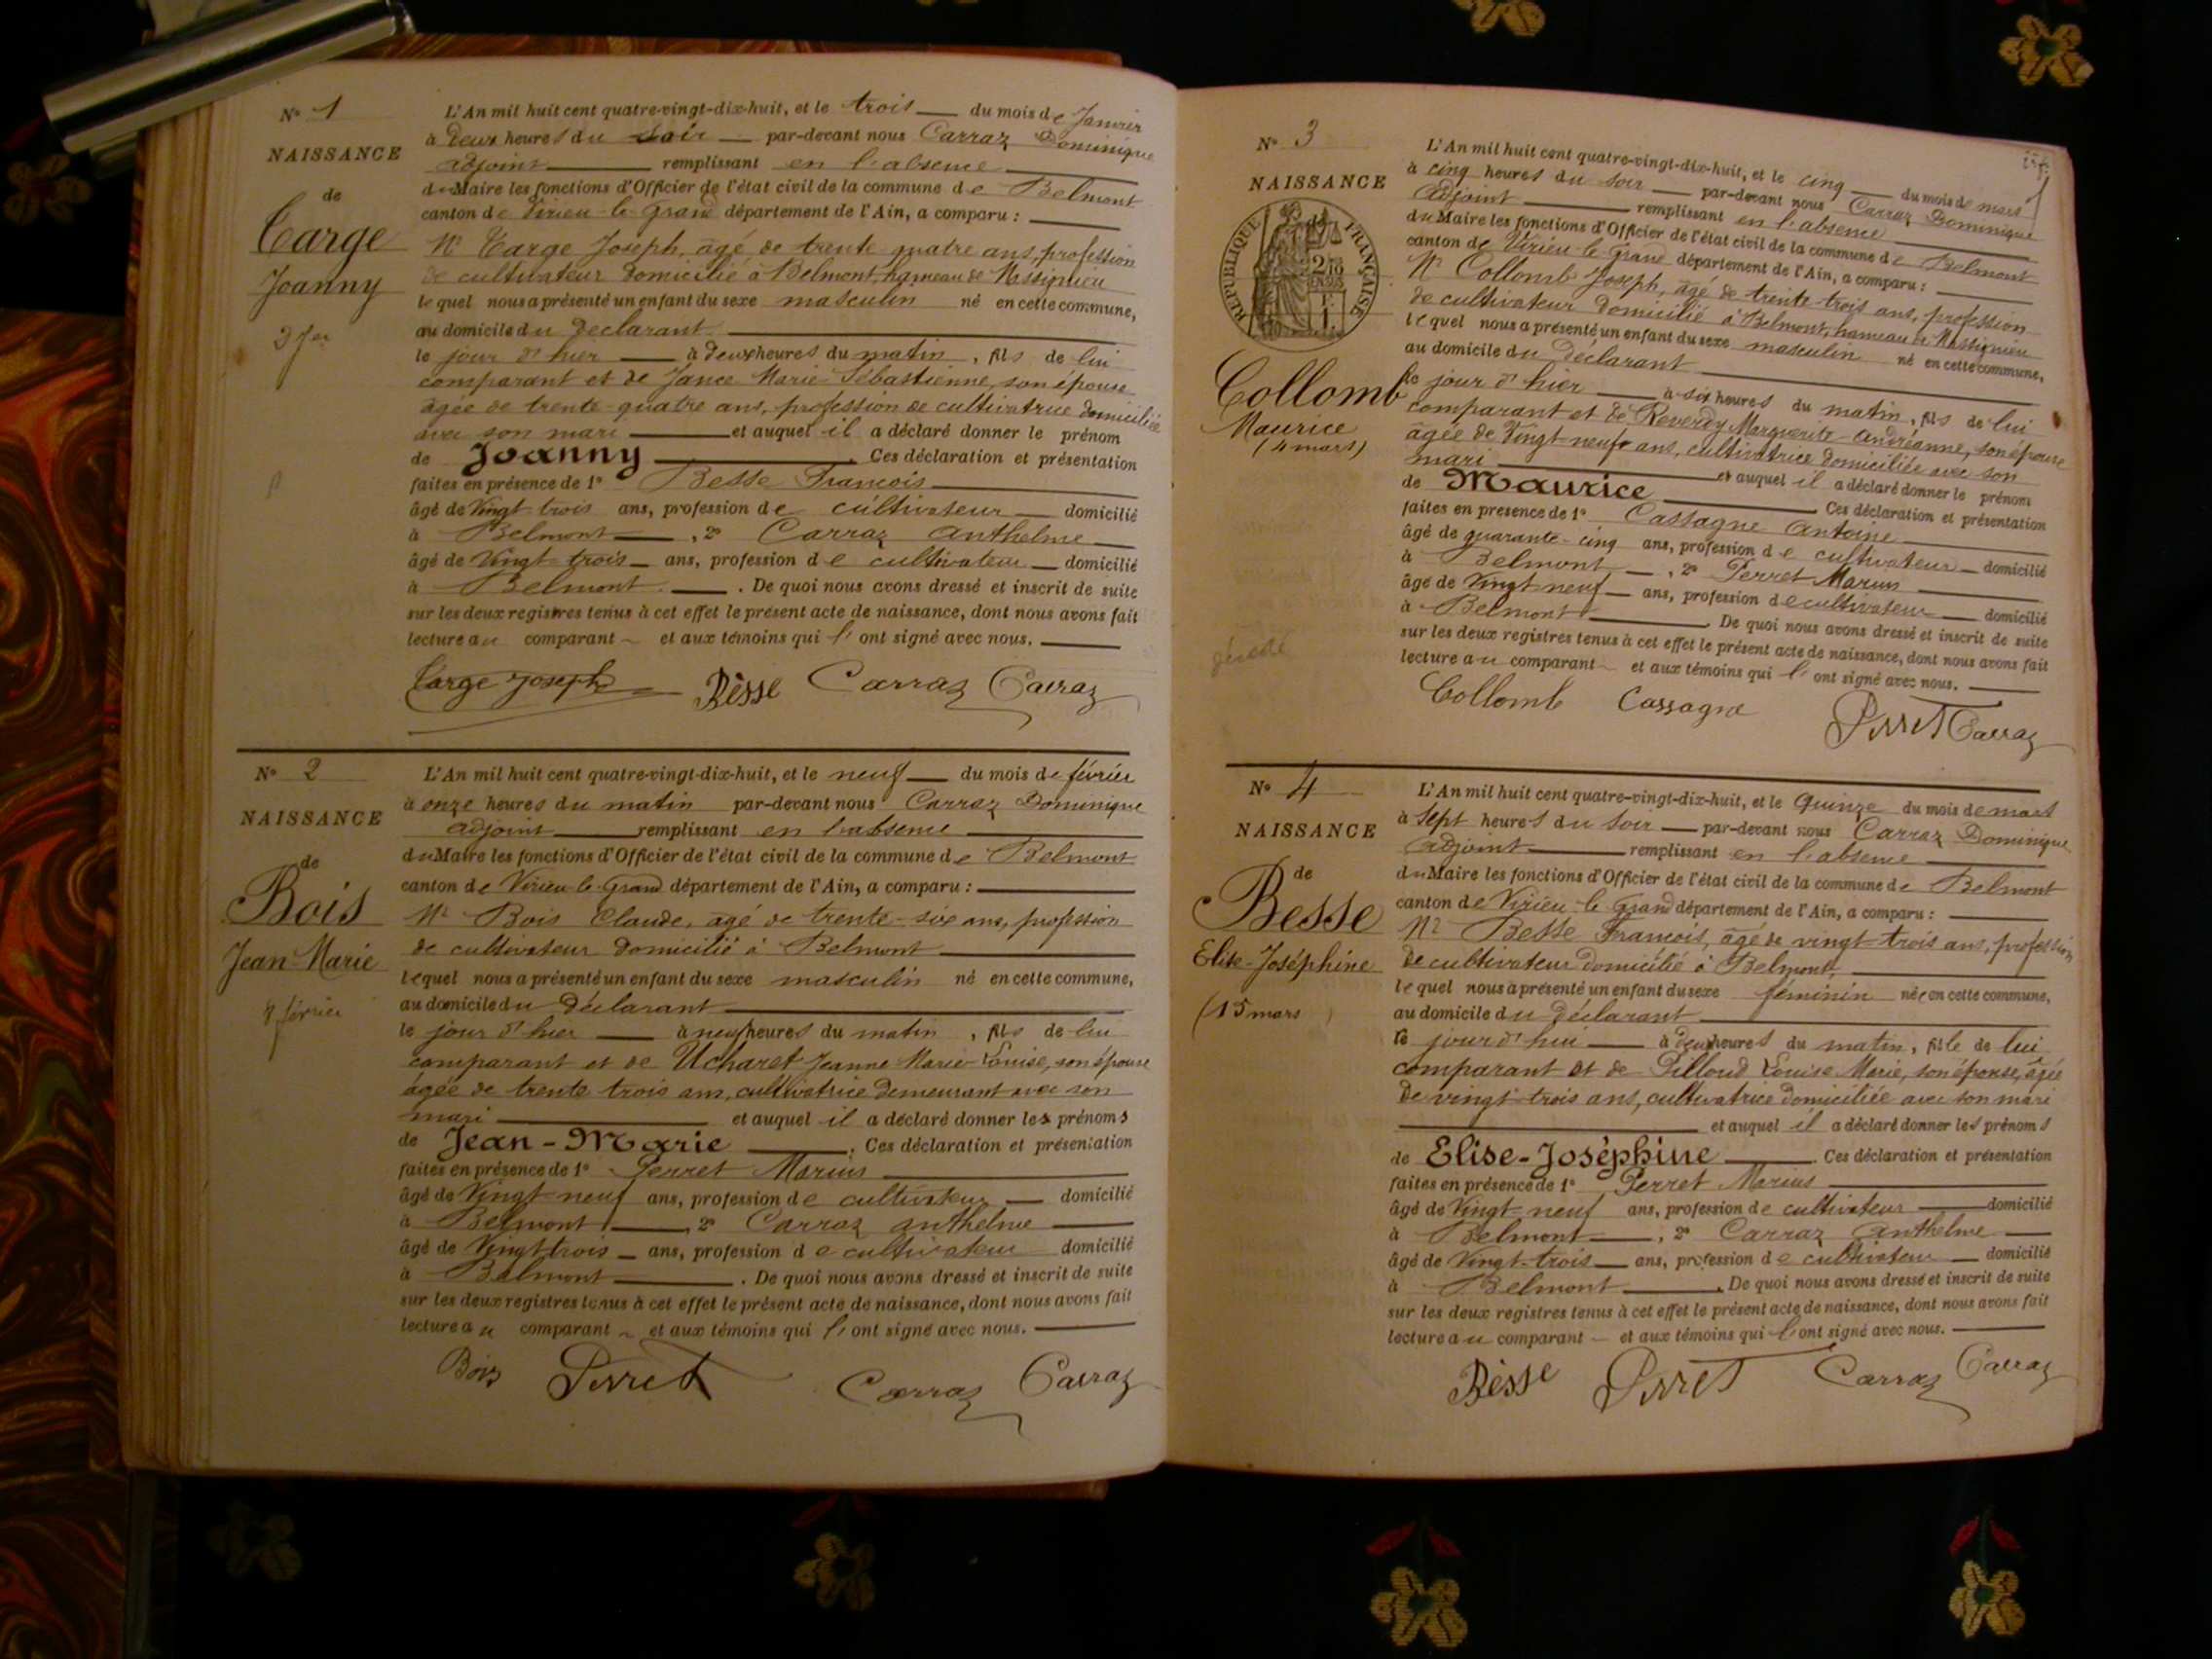 N° 1
NAISSANCE
de
Targe
Joanny
2 Jer
L'An mil huit cent quatre-vingt-dix-huit, et le trois du mois de Janvier
à deux heures du soir par-devant nous Carraz Dominique
adjoint remplissant en l'absence
du Maire les fonctions d'Officier de l'état civil de la commune de Belmont
canton de Virieu-le-Grand département de l'Ain, a comparu :
Mr Targe Joseph, âgé de trente-quatre ans, profession
de cultivateur domicilié à Belmont, hameau de Massignieu
lequel nous a présenté un enfant du sexe masculin né en cette commune,
au domicile du déclarant
le jour d'hier à deux heures du matin, fils de lui
comparant et de Jance Marie Sébastienne, son épouse
âgée de trente-quatre ans, profession de cultivatrice domiciliée
avec son mari et auquel il a déclaré donner le prénom
de Joanny Ces déclaration et présentation
faites en présence de 1° Besse François
âgé de Vingt-trois ans, profession de cultivateur domicilié
à Belmont, 2° Carraz Anthelme
âgé de Vingt-trois ans, profession de cultivateur domicilié
à Belmont. De quoi nous avons dressé et inscrit de suite
sur les deux registres tenus à cet effet le présent acte de naissance, dont nous avons fait
lecture au comparant et aux témoins qui l'ont signé avec nous.
Targe Joseph Bèsse Carraz Carraz
N° 2
NAISSANCE
de
Bois
Jean-Marie
8 février
L'An mil huit cent quatre-vingt-dix-huit, et le neuf du mois de février
à onze heures du matin par-devant nous Carraz Dominique
adjoint remplissant en l'absence
du Maire les fonctions d'Officier de l'état civil de la commune de Belmont
canton de Virieu-le-Grand département de l'Ain, a comparu :
Mr Bois Claude, âgé de trente-six ans, profession
de cultivateur domicilié à Belmont
lequel nous a présenté un enfant du sexe masculin né en cette commune,
au domicile du déclarant
le jour d'hier à neuf heures du matin, fils de lui
comparant et de Ucharet Jeanne Marie Louise, son épouse
âgée de trente trois ans, cultivatrice demeurant avec son
mari et auquel il a déclaré donner les prénoms
de Jean-Marie. Ces déclaration et présentation
faites en présence de 1° Perret Marius
âgé de Vingt-neuf ans, profession de cultivateur domicilié
à Belmont, 2° Carraz Anthelme
âgé de Vingt trois ans, profession de cultivateur domicilié
à Belmont. De quoi nous avons dressé et inscrit de suite
sur les deux registres tenus à cet effet le présent acte de naissance, dont nous avons fait
lecture au comparant et aux témoins qui l'ont signé avec nous.
Bois Perret Carraz Carraz
N° 3
NAISSANCE
REPUBLIQUE FRANÇAISE
Collomb
Maurice
(4 mars)
L'An mil huit cent quatre-vingt-dix-huit, et le cinq du mois de mars
à cinq heures du soir par-devant nous Carraz Dominique
adjoint remplissant en l'absence
du Maire les fonctions d'Officier de l'état civil de la commune de Belmont
canton de Virieu-le-Grand département de l'Ain, a comparu :
Mr Collomb Joseph, âgé de trente-trois ans, profession
de cultivateur domicilié à Belmont, hameau de Massignieu
lequel nous a présenté un enfant du sexe masculin né en cette commune,
au domicile du déclarant
le jour d'hier à six heures du matin, fils de lui
comparant et de Reverdy Marguerite-Andréanne, son épouse
âgée de Vingt-neuf ans, cultivatrice domiciliée avec son
mari et auquel il a déclaré donner le prénom
de Maurice Ces déclaration et présentation
faites en présence de 1° Cassagne Antoine
âgé de quarante-cinq ans, profession de cultivateur domicilié
à Belmont, 2° Perret Marius
âgé de Vingt-neuf ans, profession de cultivateur domicilié
à Belmont. De quoi nous avons dressé et inscrit de suite
sur les deux registres tenus à cet effet le présent acte de naissance, dont nous avons fait
lecture au comparant et aux témoins qui l'ont signé avec nous.
Collomb Cassagne Perret Carraz
N° 4
NAISSANCE
de
Besse
Elise-Joséphine
(15 mars)
L'An mil huit cent quatre-vingt-dix-huit, et le Quinze du mois de mars
à sept heures du soir par-devant nous Carraz Dominique
adjoint remplissant en l'absence
du Maire les fonctions d'Officier de l'état civil de la commune de Belmont
canton de Virieu-le-Grand département de l'Ain, a comparu :
Mr Besse François, âgé de vingt-trois ans, profession
de cultivateur domicilié à Belmont,
lequel nous a présenté un enfant du sexe féminin née en cette commune,
au domicile du déclarant
le jour d'hui à deux heures du matin, fille de lui
comparant et de Pilloud Louise Marie, son épouse, âgée
de vingt-trois ans, cultivatrice domiciliée avec son mari
et auquel il a déclaré donner les prénoms
de Elise-Joséphine Ces déclaration et présentation
faites en présence de 1° Perret Marius
âgé de Vingt-neuf ans, profession de cultivateur domicilié
à Belmont, 2° Carraz Anthelme
âgé de Vingt-trois ans, profession de cultivateur domicilié
à Belmont. De quoi nous avons dressé et inscrit de suite
sur les deux registres tenus à cet effet le présent acte de naissance, dont nous avons fait
lecture au comparant et aux témoins qui l'ont signé avec nous.
Bèsse Perret Carraz Carraz